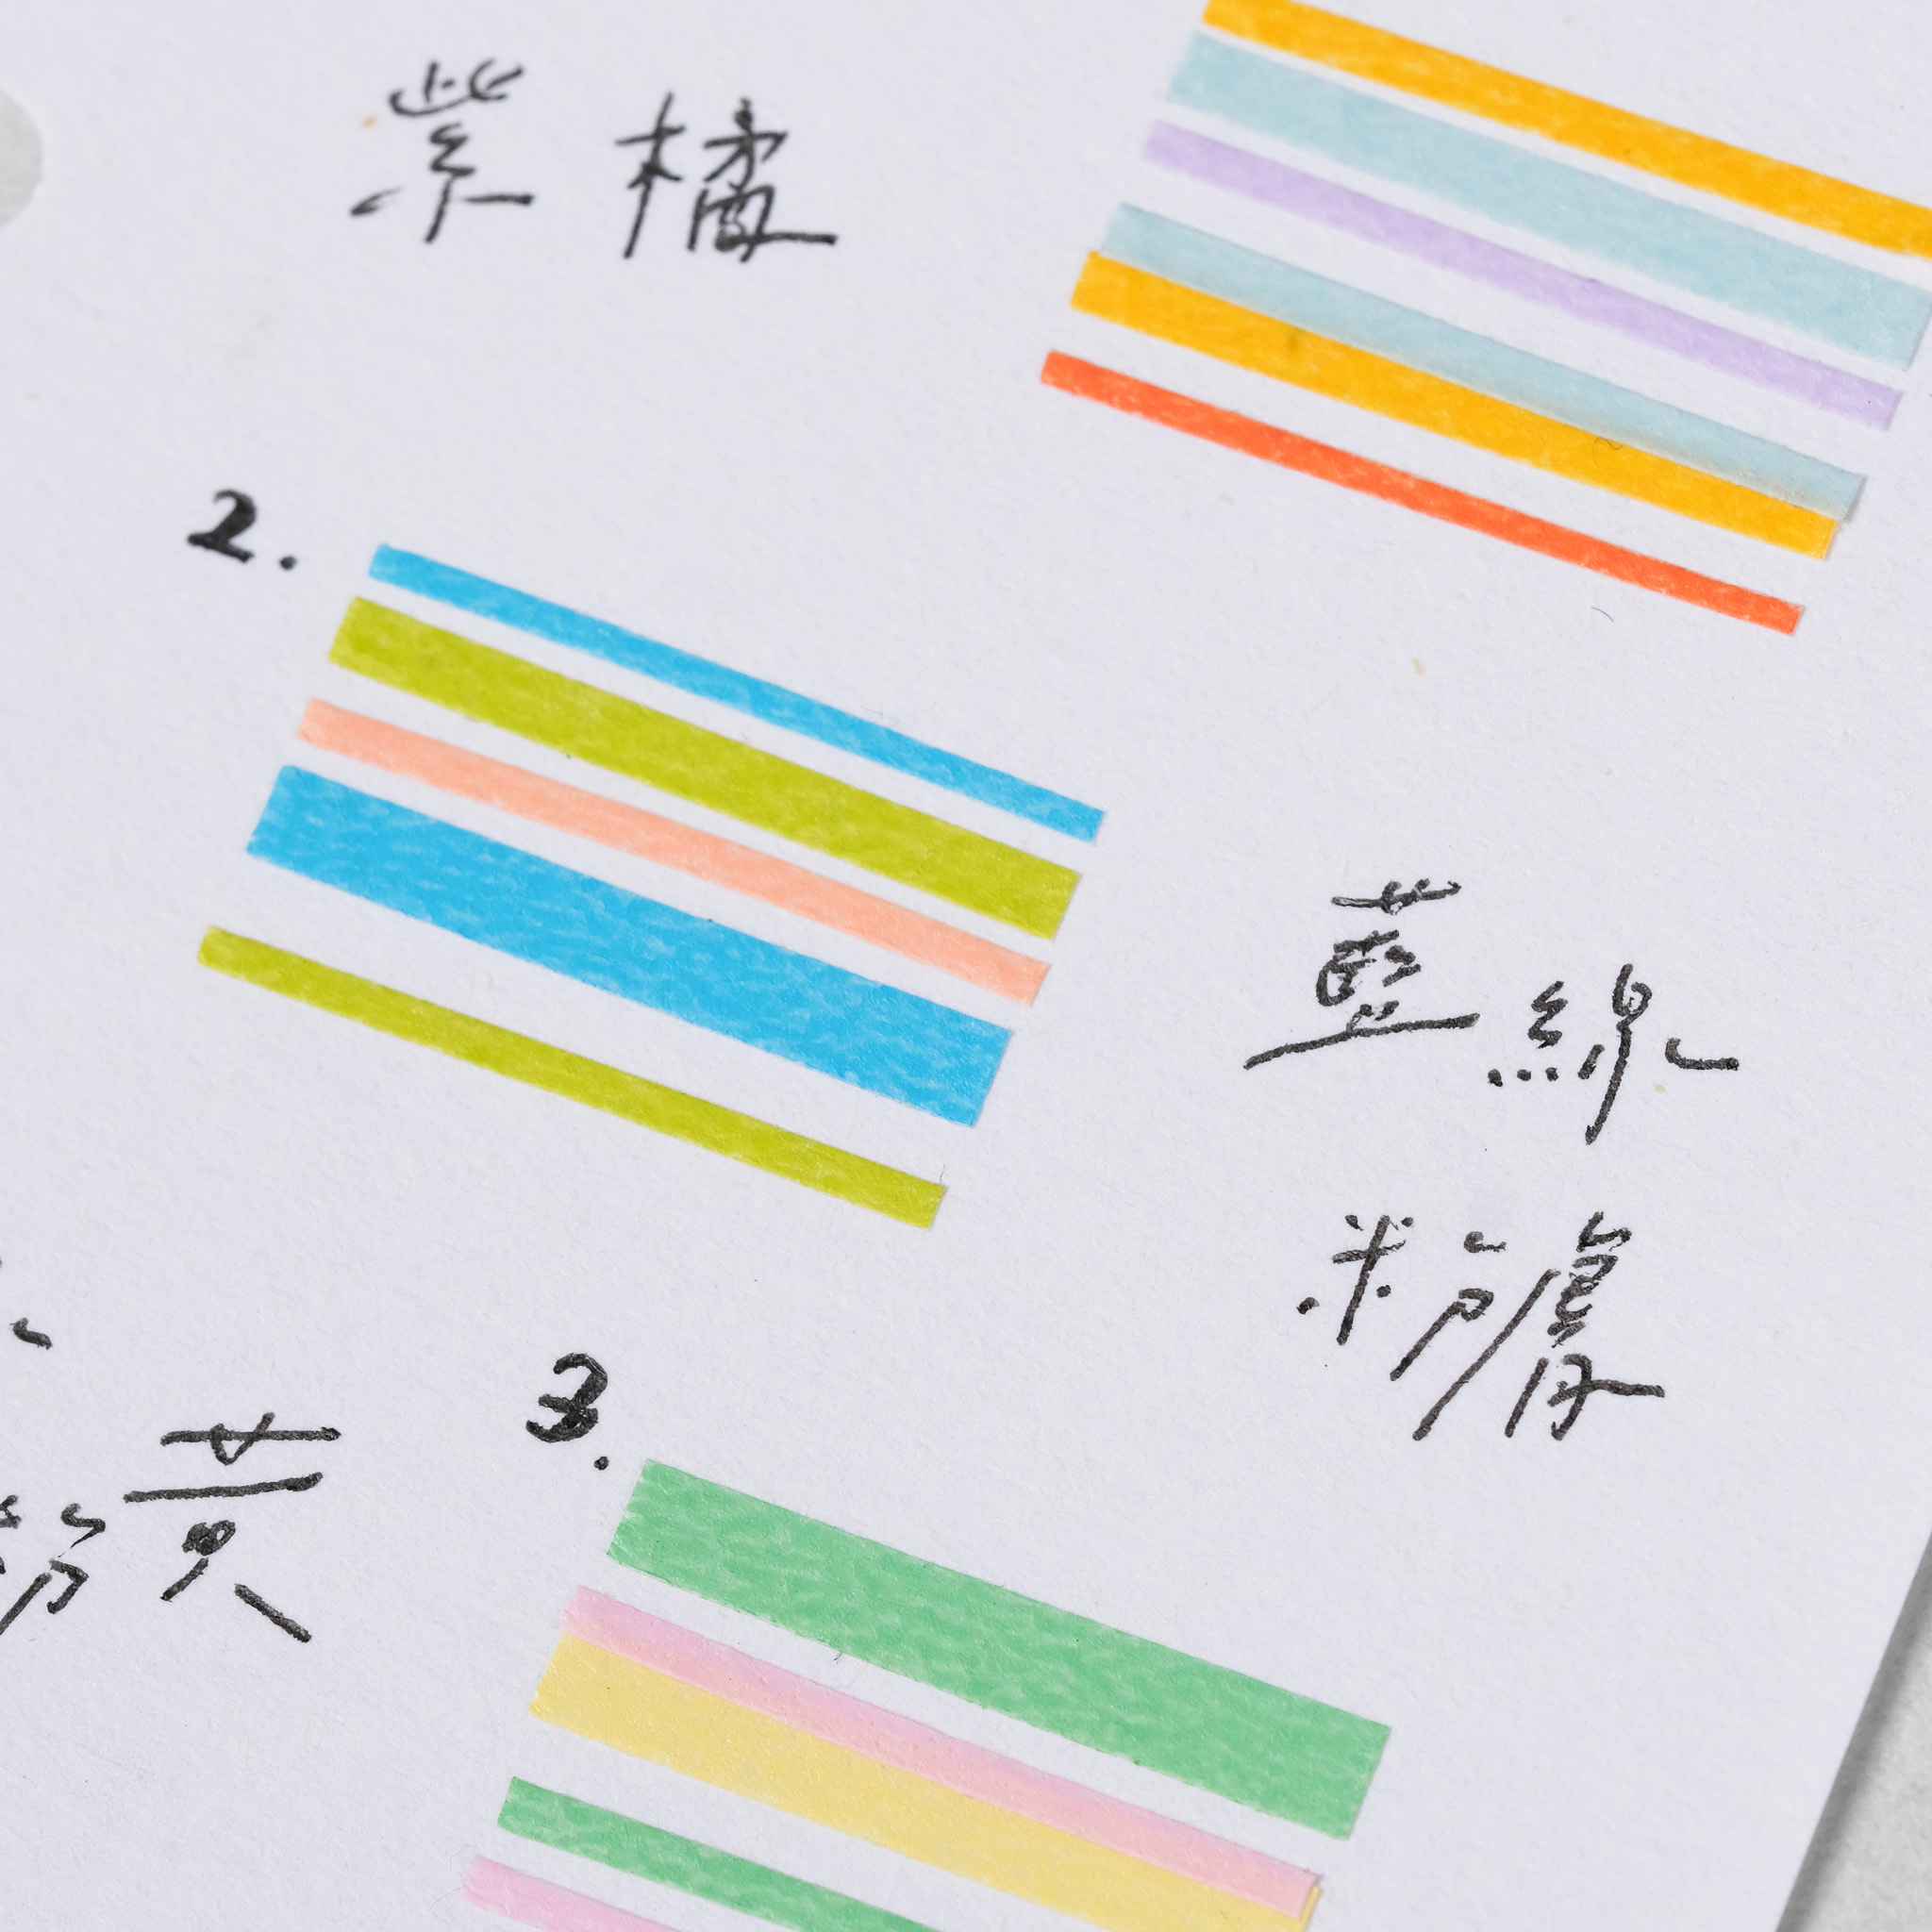 紫橘
2.
藍綠
粉膚
3.
粉黃